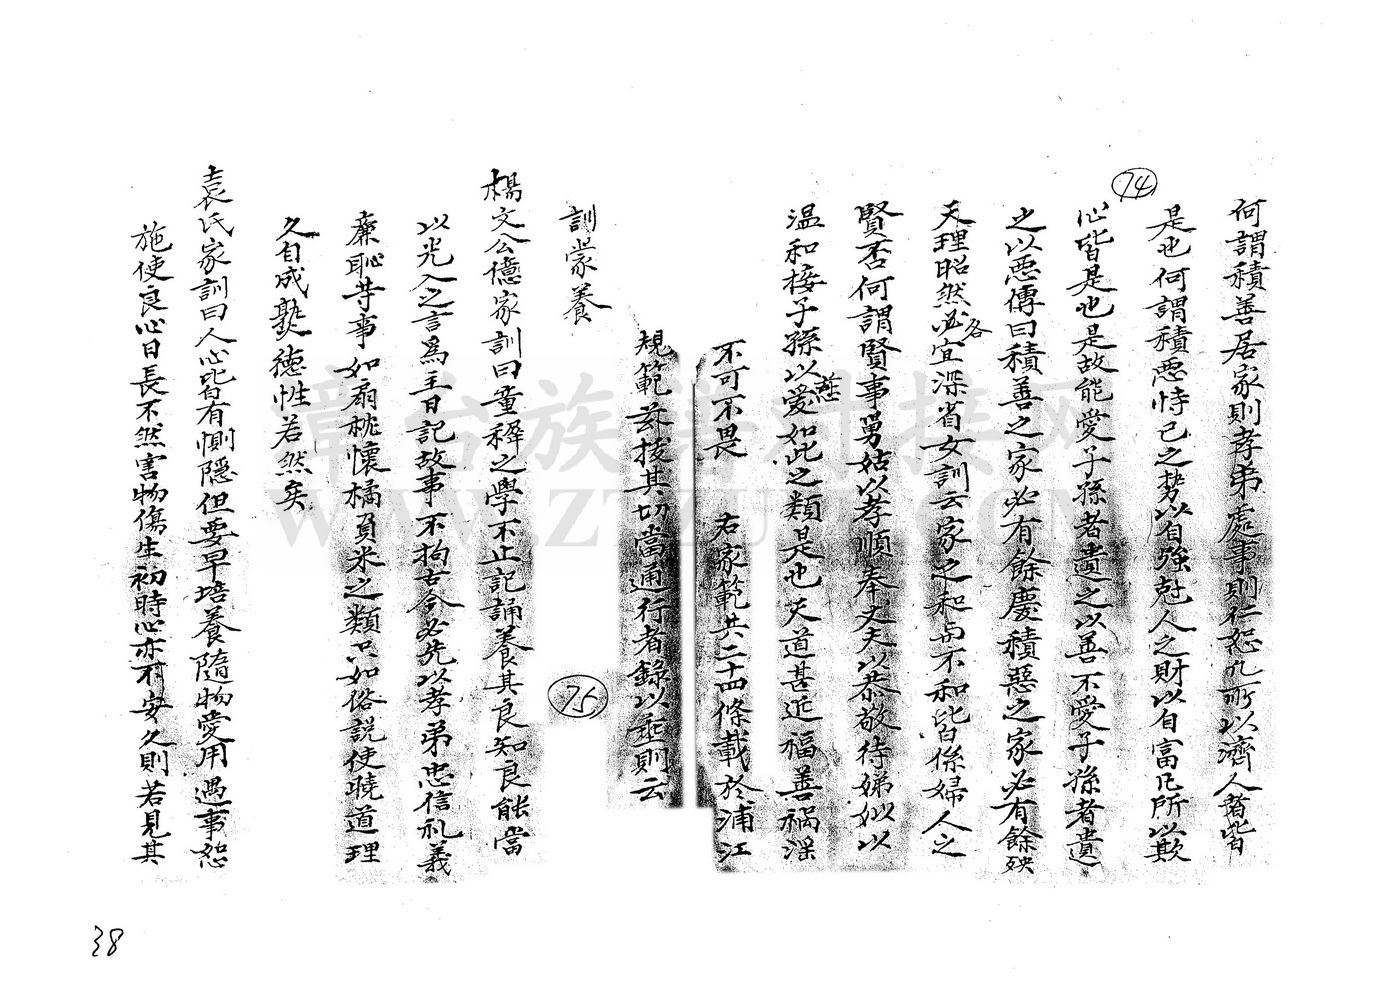 何謂積善居家則孝弟處事則仁恕凡所以濟人者皆
74
是也何謂積悪恃己之勢以自強尅人之財以自富凡所以欺
心皆是也是故能愛子孫者遺之以善不愛子孫者遺
之以悪傳曰積善之家必有餘慶積惡之家必有餘殃
天理昭然必宜深省女訓云家之和而不和皆係婦人之
各
賢否何謂賢事舅姑以孝順奉丈夫以恭敬待娣姒以
溫和接子孫以愛如此之類是也天道甚近福善禍淫
慈
不可不畏 右家範共二十四條載於浦江
規範茲拔其切當通行者錄以垂則云
75
訓蒙養
楊文公億家訓曰童穉之學不止記誦養其良知良能當
以先入之言為主日記故事不拘古今必先以孝弟忠信礼義
廉恥等事如扇枕懷橘負米之類只如俗説使曉道理
久自成熟德性若然矣
袁氏家訓曰人心皆有惻隱但要早培養隨物愛用遇事恕
施使良心日長不然害物傷生初時心亦不安久則若見其
38
章台族譜对接网
WWW.ZTZUPU.COM